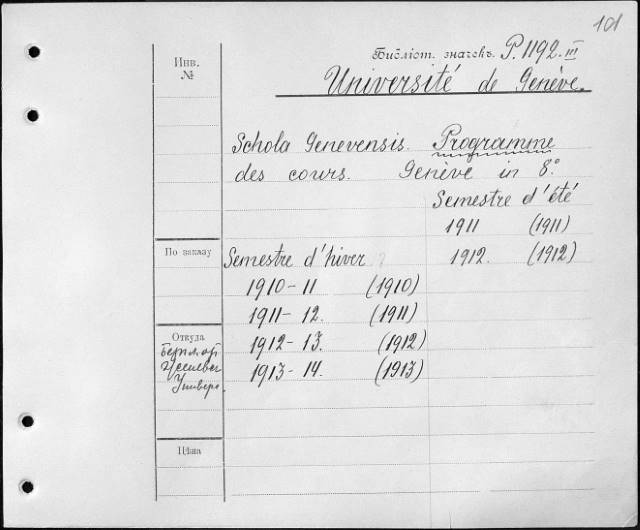 101
Инв.
№
Библіот. значекъ P.1192.III
Université de Genève.
Schola Genevensis. Programme
des cours. Genève in 8.°
Semestre d'été
1911 (1911)
1912. (1912)
По заказу
Semestre d'hiver
1910-11 (1910)
1911-12. (1911)
1912-13. (1912)
1913-14. (1913)
Откуда
Универс.
Цѣна